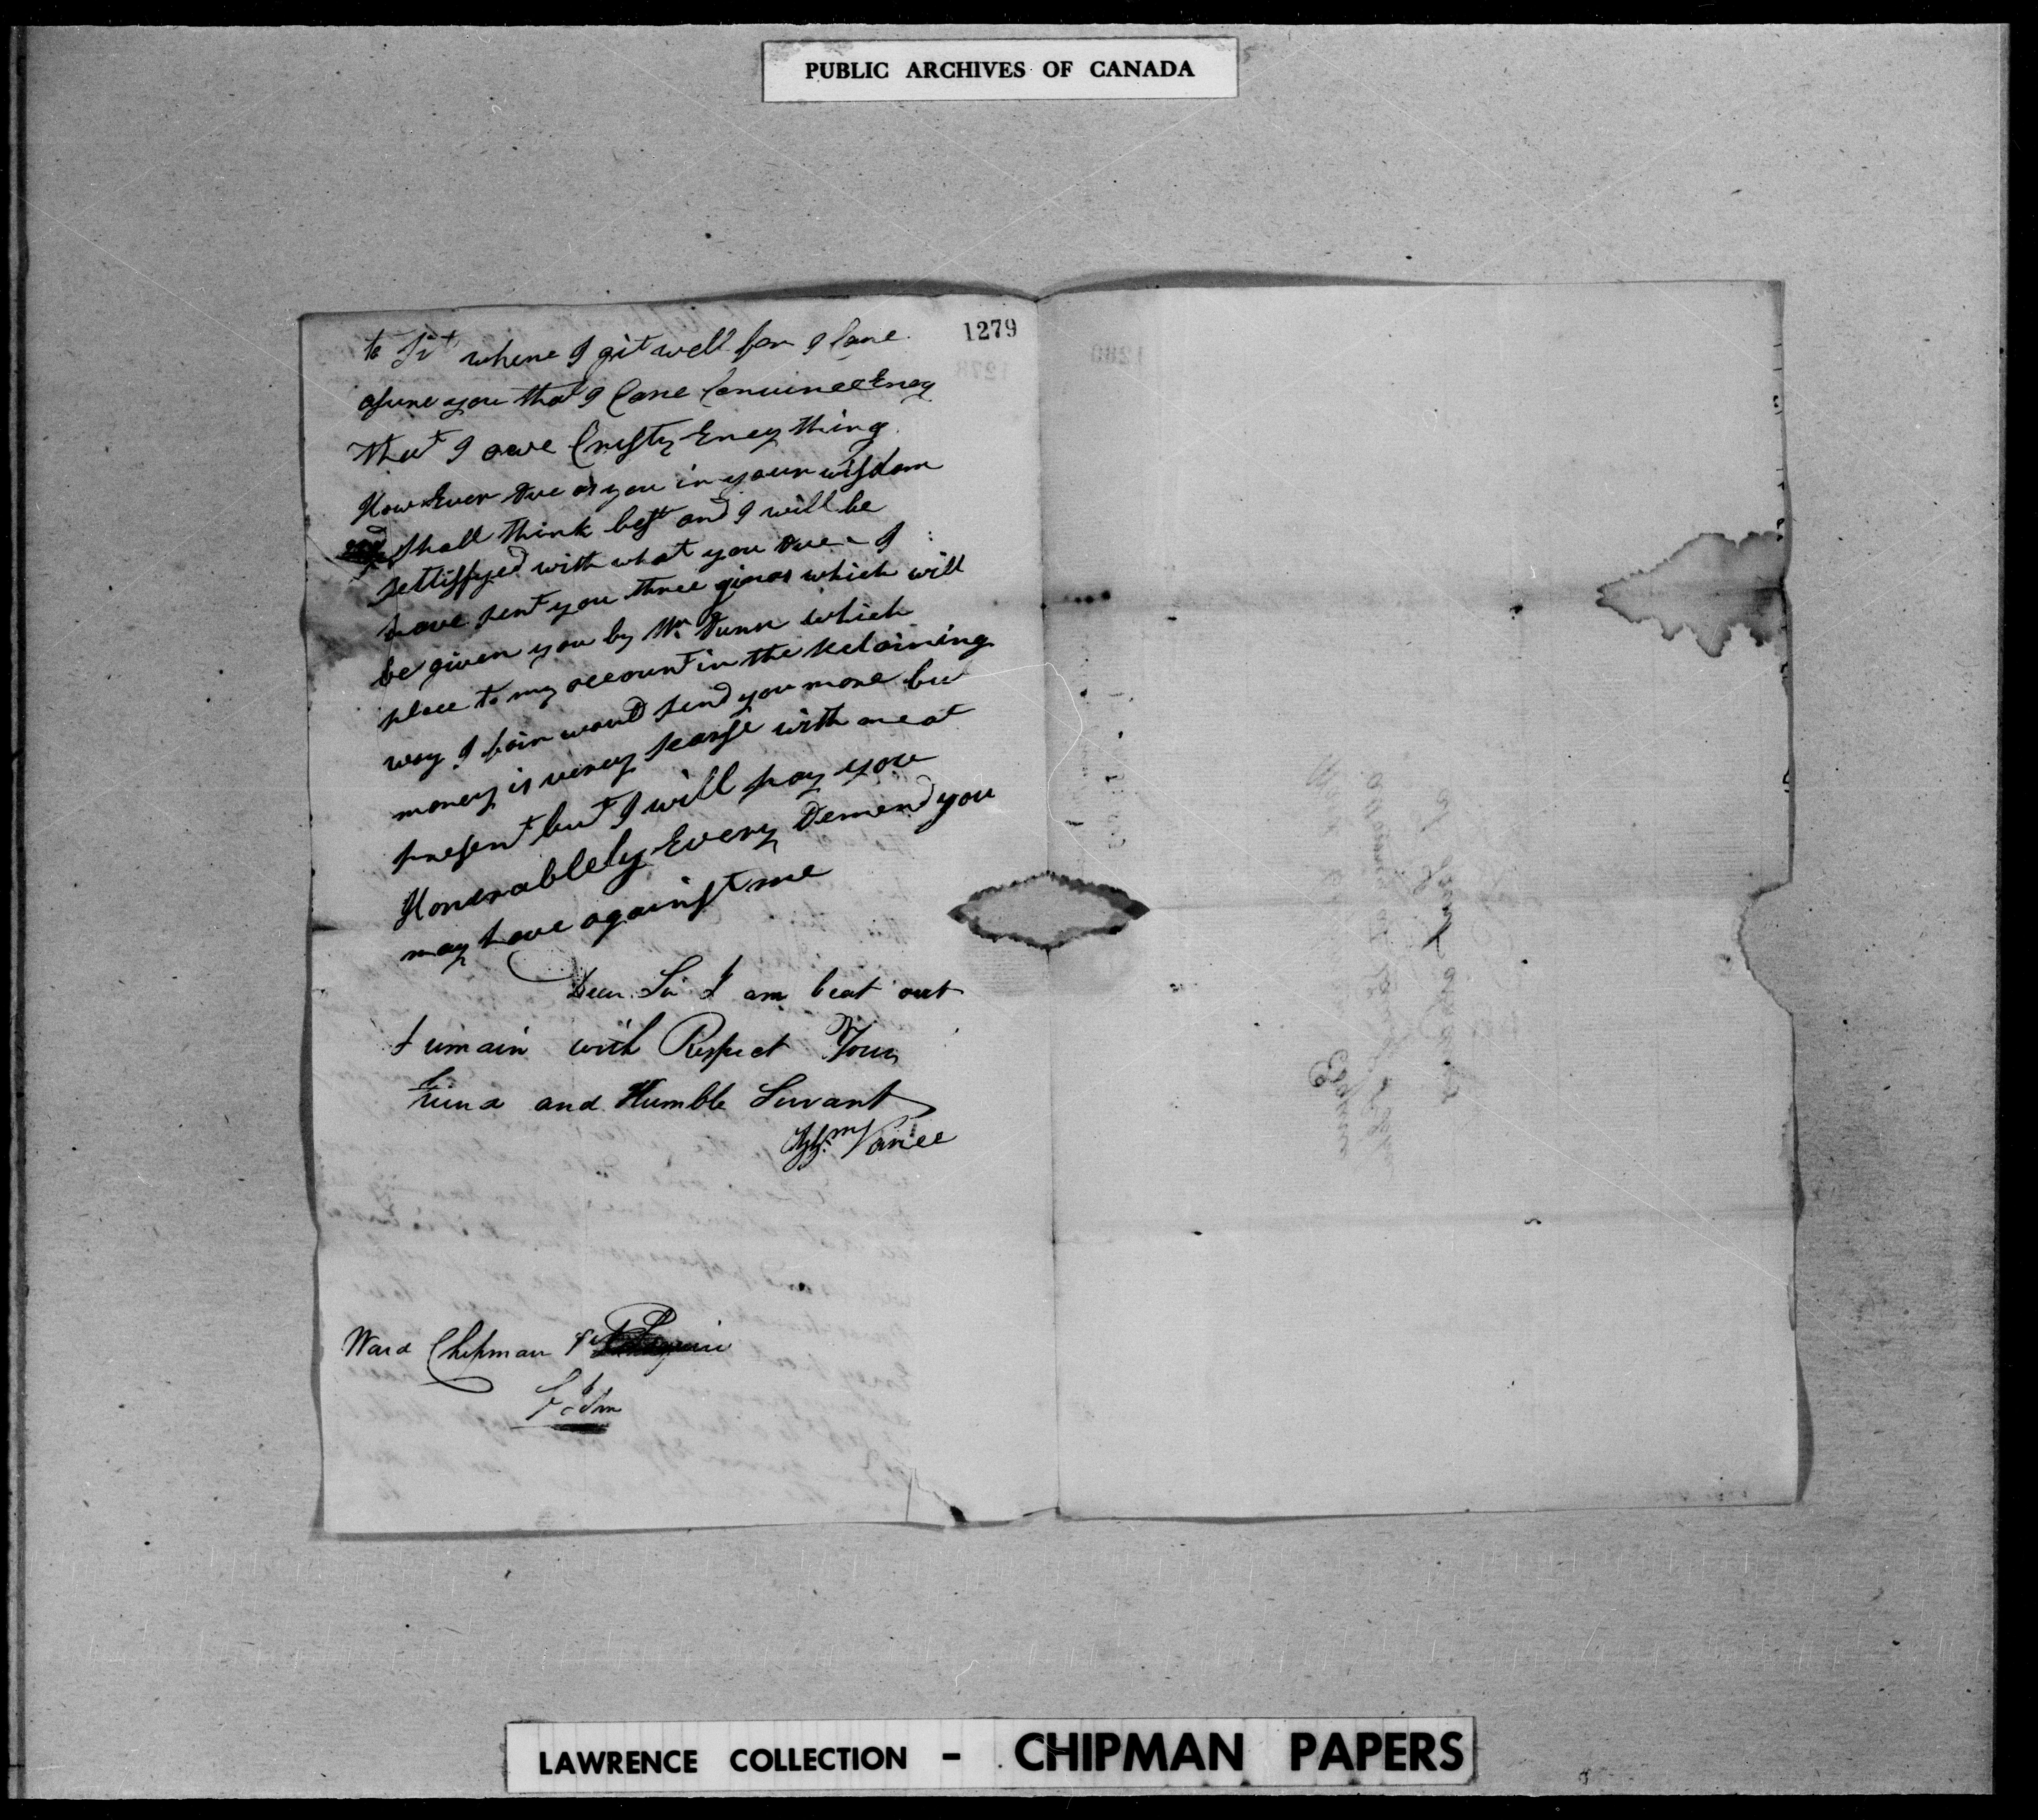 PUBLIC ARCHIVES OF CANADA
1279
to where I git well for I cane
asure you that I Cane Convince Eney
that I owe Crusty Eney thing
How Ever due as you in your wisdom
shall think best and I will be
settisfyed with what you due - I
have sent you three ginas which will
be given you by Mr Dunn which
place to my account in the Retaining
way I fain would send you more but
money is verey scarse with me at
present but I will pay you
Honerablely Every Demend you
may have against me
Dear Sir I am beat out
I remain with Respect Your
Friend and Humble Servant
Wm Vance
Ward Chipman
LAWRENCE COLLECTION - CHIPMAN PAPERS